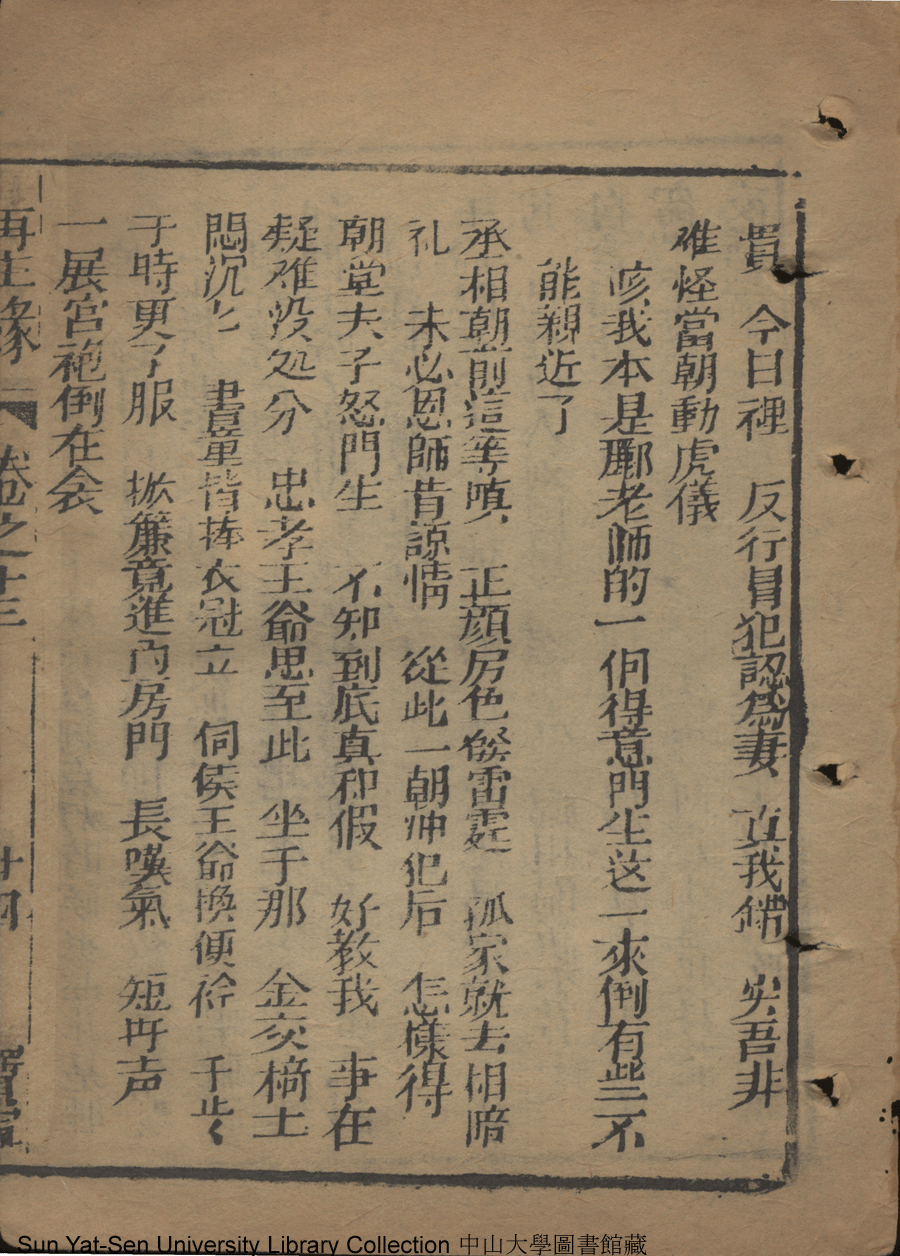 貴　今日裡　反行冒犯認為妻　真我錯　实吾非
难怪當朝動虎儀
咳我本是酈老師的一個得意門生这一來倒有些不
能親近了
丞相朝前這等嗔　正顔厉色發雷霆　孤家就去相賠
礼　未必恩師肯諒情　從此一朝冲犯后　怎樣得
朝堂夫子怒門生　不知到底真和假　好教我　事在
疑难没处分　忠孝王爺思至此　坐于那　金交椅上
悶沉〻　書童皆捧衣冠立　伺侯王爺換便衿　于此〻
于時更了服　掀簾竟進內房門　長嘆氣　短叫声
一展宮袍倒在衾
再生緣　卷之十三　廿四
Sun Yat-Sen University Library Collection 中山大學圖書館藏